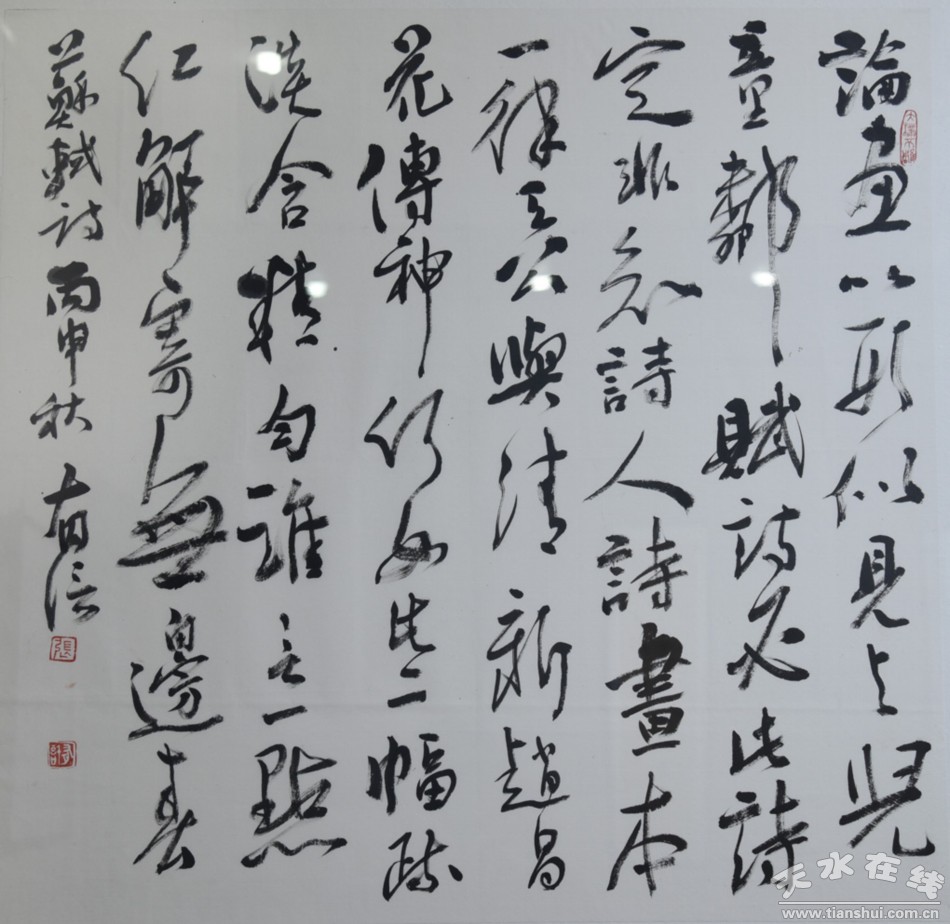 論画以形似見与兒
童鄰賦詩必此詩
定非知詩人詩畫本
一律天公與清新趙昌
花傳神何如此二幅疏
淡含精勻誰言一點
红解寄無邊春
蘇軾詩 丙申秋 有信
張
天水在线
www.tianshui.com.cn